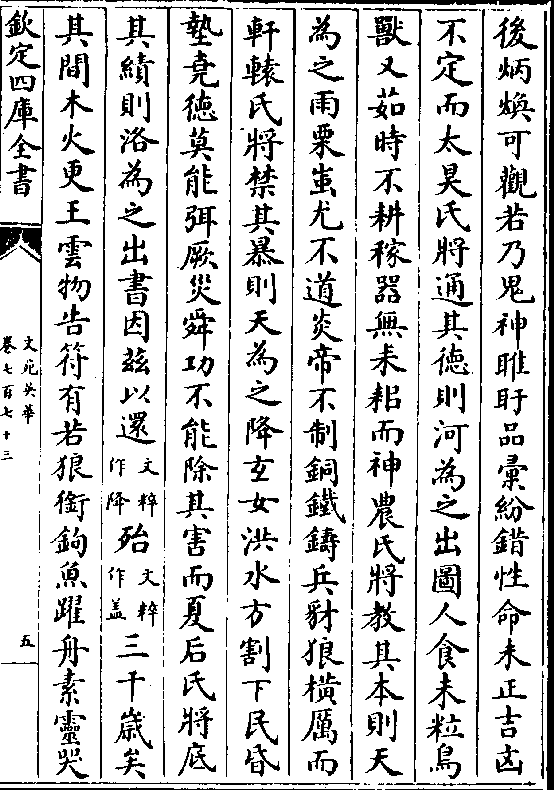 後炳煥可觀若乃鬼神睢盱品彙紛錯性命未正吉凶
不定而太昊氏將通其德則河為之出圖人食未粒鳥
獸又茹時不耕稼器無耒耜而神農氏將教其本則天
為之雨粟蚩尤不道炎帝不制銅鐵鑄兵豺狼橫厲而
軒轅氏將禁其暴則天為之降玄女洪水方割下民昏
墊堯德莫能弭厥災舜功不能除其害而夏后氏將底
其績則洛為之出書因茲以還文粹作降殆文粹作盖三千歲矣
其間木火更王雲物告符有若狼銜鉤魚躍舟素靈哭
欽定四庫全書
文苑英華
卷七百七十三
五